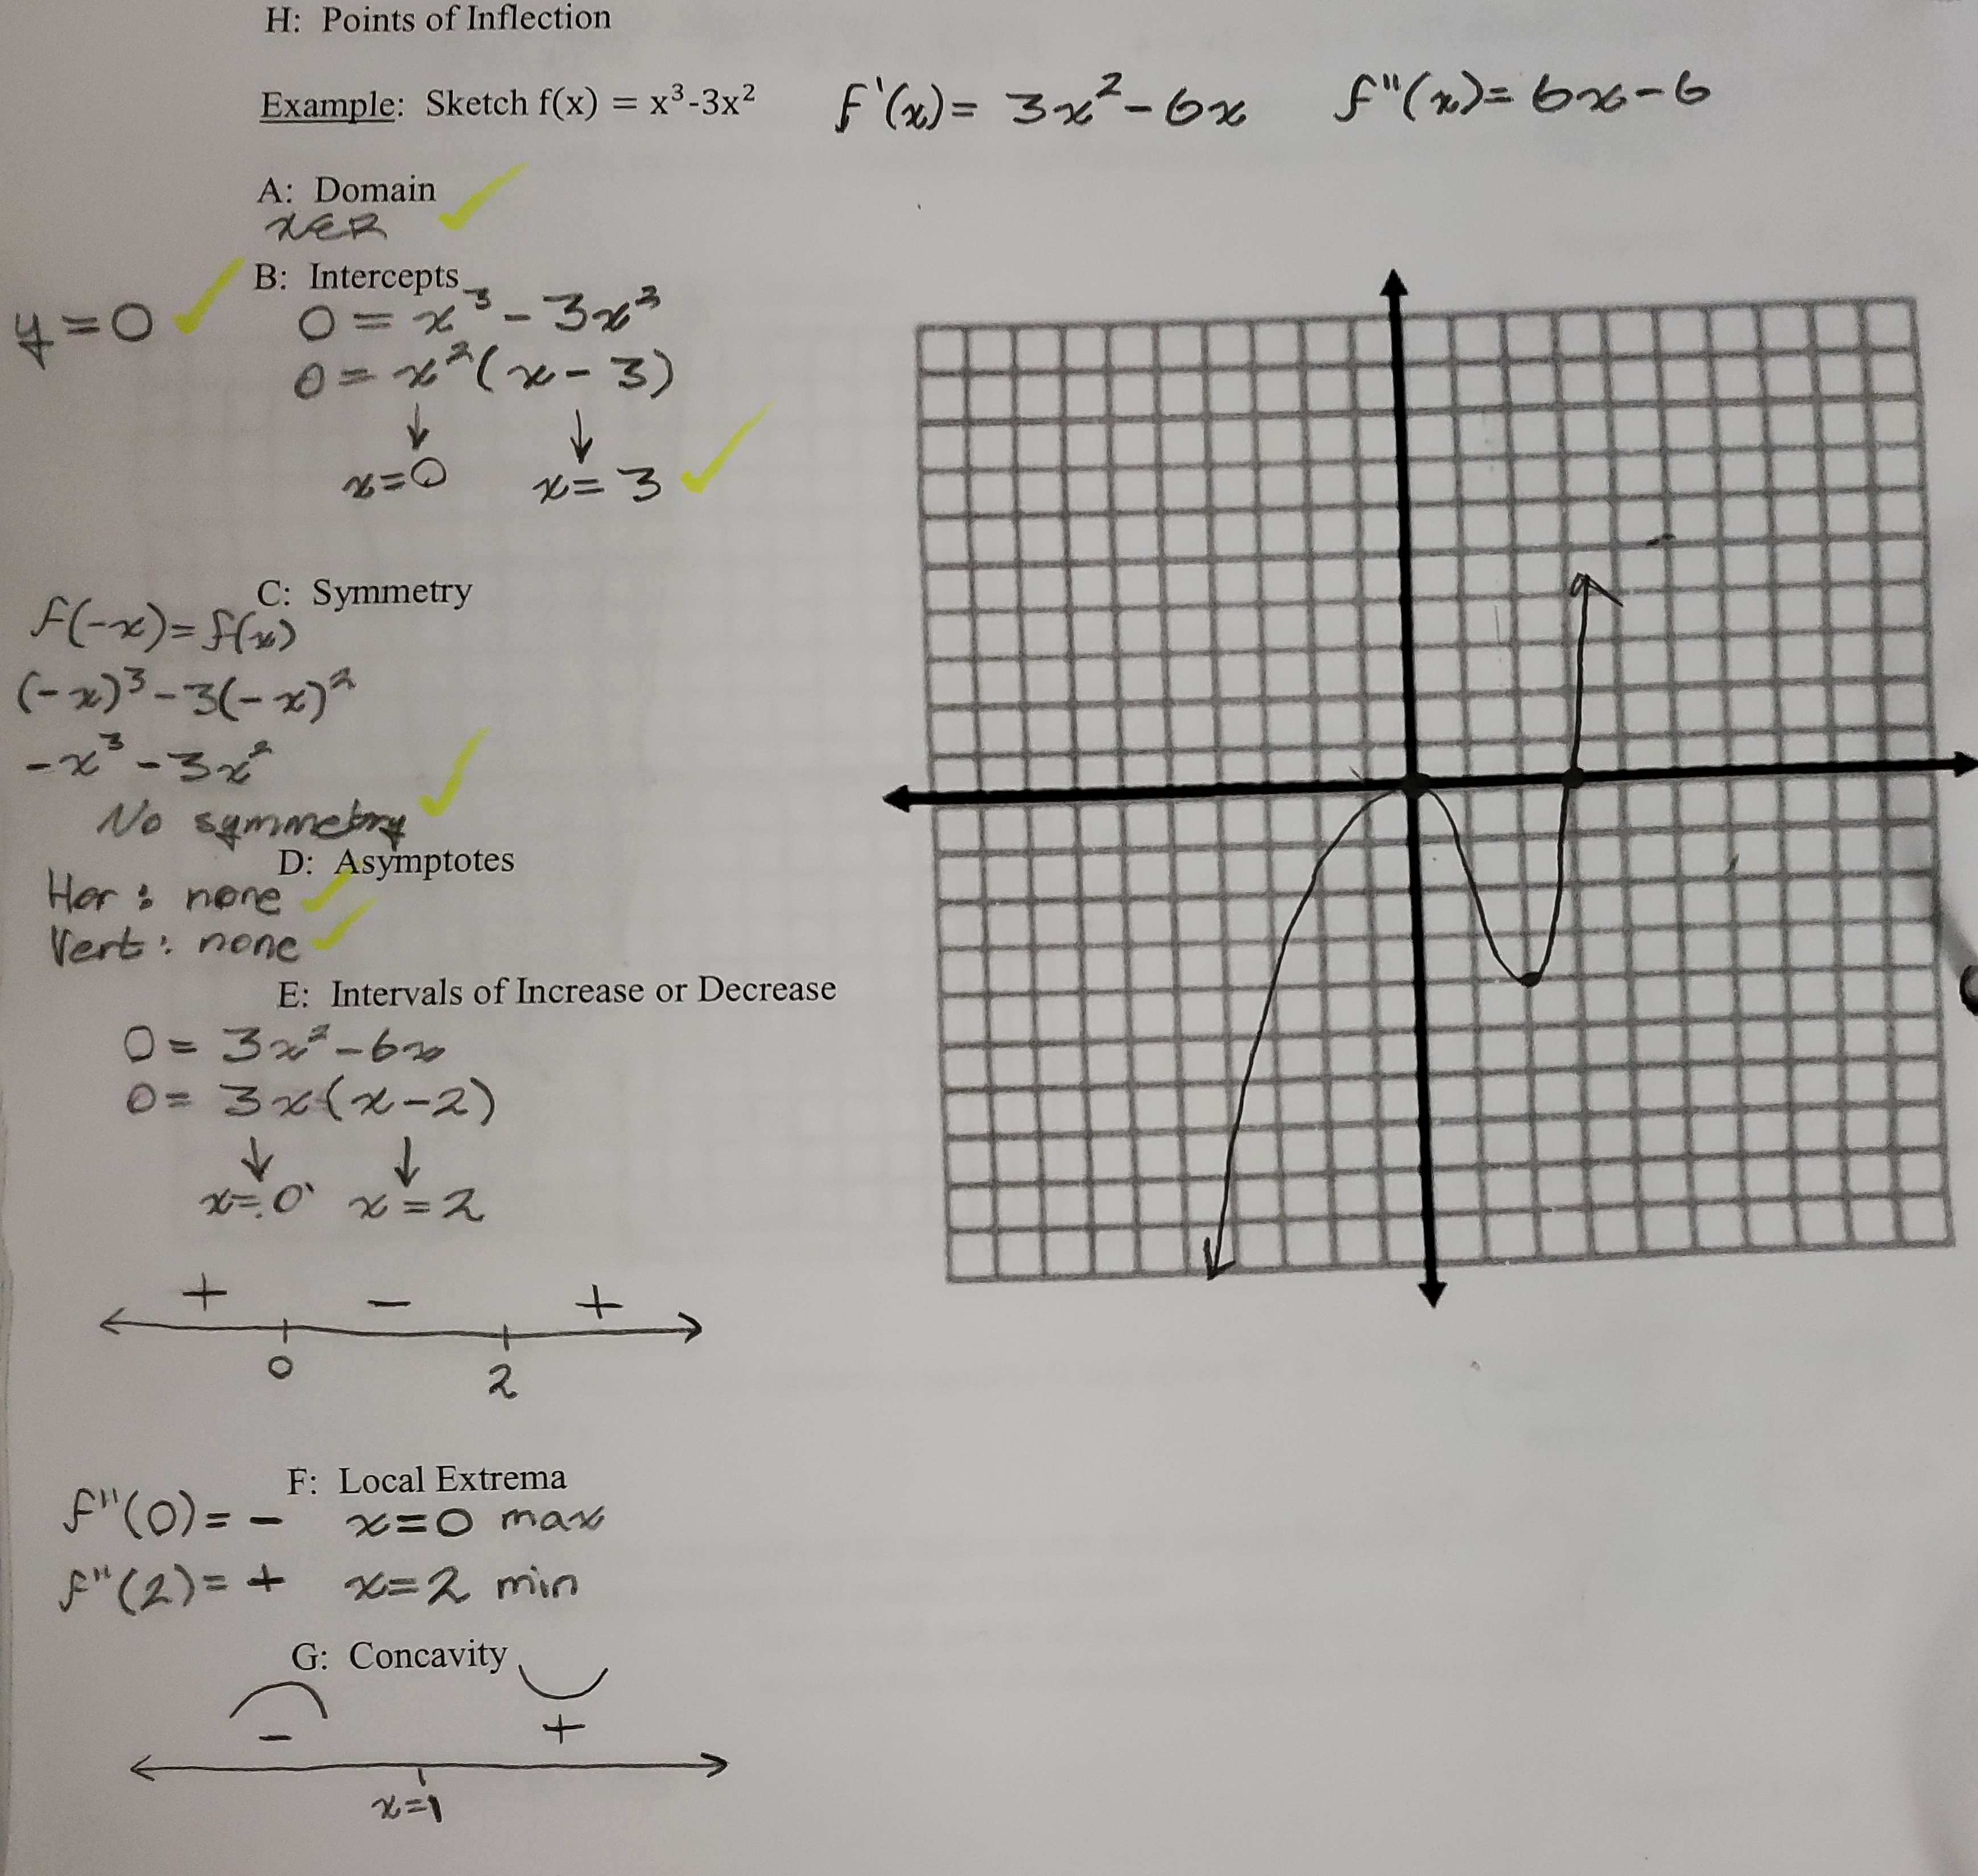 H: Points of Inflection
Example: Sketch f(x) = x³-3x² f'(x) = 3x² - 6x f"(x) = 6x - 6
A: Domain
x∈R
B: Intercepts
y = 0 0 = x³ - 3x²
0 = x²(x - 3)
↓ ↓
x=0 x=3
C: Symmetry
f(-x) = f(x)
(-x)³ - 3(-x)²
-x³ - 3x²
No symmetry
D: Asymptotes
Hor: none
Vert: none
E: Intervals of Increase or Decrease
0 = 3x² - 6x
0 = 3x(x-2)
↓ ↓
x=0 x=2
+ - +
0 2
F: Local Extrema
f"(0) = - x=0 max
f"(2) = + x=2 min
G: Concavity
- +
x=1